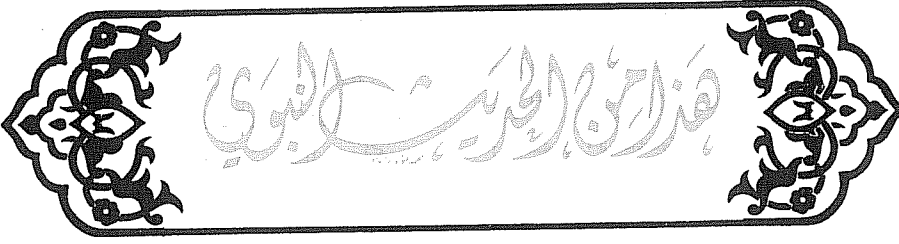 هَذَا مِنَ الحَدِيث النَّبَوِي